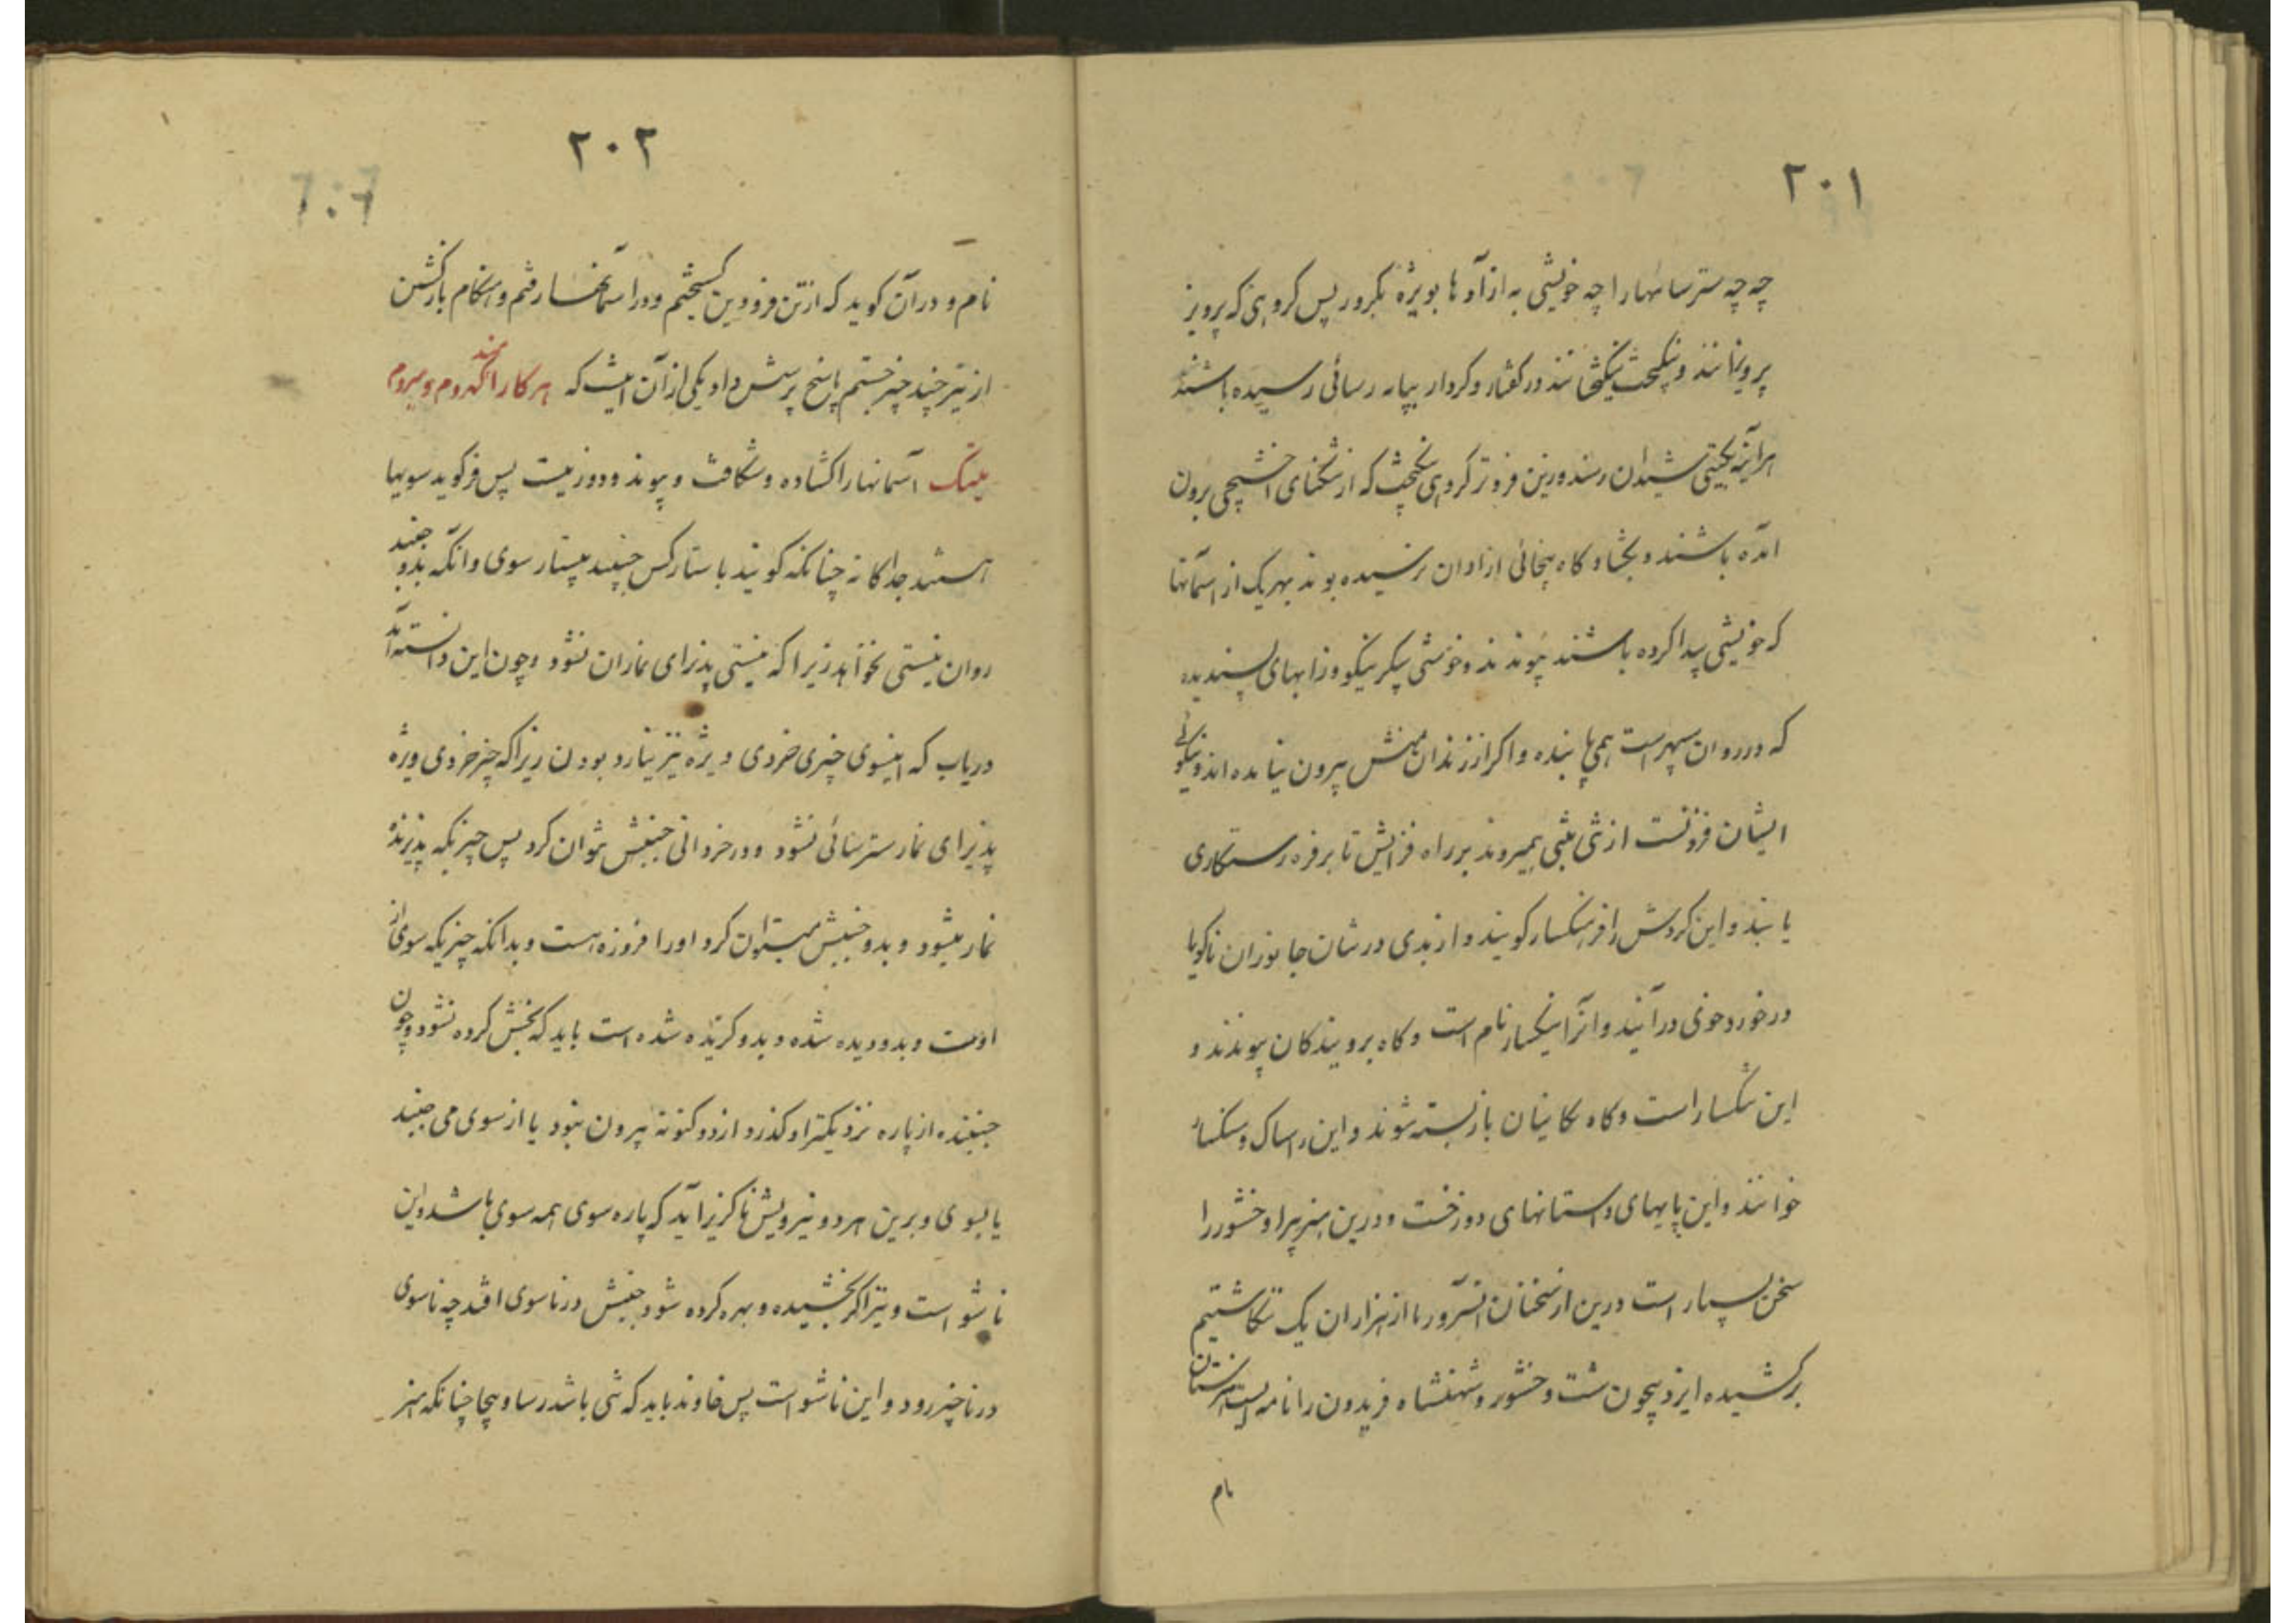 ۲۰۱
چه چه سترسانها را چه خویشی به از آدها بویژه نکرور پس کروهی که پرویز
پرویزمانند و نیکبخت نیکبختانند در کفتار و کردار بپایه رسائی رسیده باشند
هرآینه بکیتی شیدان رسند وزین فروتر کروهی نیکبخت که از تنکنای اخشیجی برون
آمده باشند و بکشاد کاه بیجائی آزادان نرسیده بوند بهر یک از آسمانها
که خویشی پیدا کرده باشند پیوندند و خوشی پیکر نیکو و زابهای پسندیده
که در روان سپهر است همی یابنده و اکر از زندان منش بیرون نیامده اند و نیکوئی
ایشان فزونست از تنی بتنی همیروند بر راه فزایش تا برفره رستکاری
یابند و این کردش را فرهنکسار کویند و از بدی در شان جانوران ناکویا
در خورد خوی درآیند و آنرا ننکسار نام است و کاه برویندکان پیوندند و
این تنکسار است و کاه بکانیان بازبسته شوند و این راساک و سنکسار
خوانند و این پایهای و استانهای دوزخست و درین هنر پیرا و خشور را
سخن بسیار است درین از سخنان آنسرور ما از هزاران یک نکاشتیم
برکشیده ایزد بیچون شت وخشور و شهنشاه فریدون را نامه ایست هنرستان
نام
۲۰۲
نام و در آن کوید که از تن فرودین کسیختم و ور آسمانها رفتم و هنکام بازکشتن
از تیر چند چیز جستم پاسخ پرسش داد یکی از آن اینست که هر کار
آسمانها را کشاده و شکافت و پیوند و دوز نیست پس فرکوید سویها
هستند جداکانه چنانکه کویند باستار کس جنبید بیستار سوی و آنکه بدو جنبد
روان نیستی نخواهد زیرا که نیستی پذیرای نماران نشود و چون این دانسته آمد
دریاب که اینسوی چیزی خردی و ویژه نیز نیارد بودن زیرا که چیز خردی ویژه
پذیرای نمار سترسائی نشود و در خردانی جنبش نتوان کرد پس چیزیکه پذیرنده
نمار میشود و بدو جنبش میتوان کرد او را فروزه است و بدانکه چیزیکه سوی از
اوست و بدو دیده شده و بدو کرنده شده است باید که بخش کرده نشود و چون
جنبنده از پاره نزدیکتر او کذرد از دو کونه بیرون نبود یا از سوی می جنبد
یا بسوی و برین هر دو نیرویش ناکزیر آید که پاره سوی همه سوی باشد و این
ناشو است و نیز اکر بخشیده و بهره کرده شود جنبش در ناسوی افتد چه ناسوی
در ناچیز رود و این ناشو است پس خاوند باید که تنی باشد رسا و بیجا چنانکه هنر